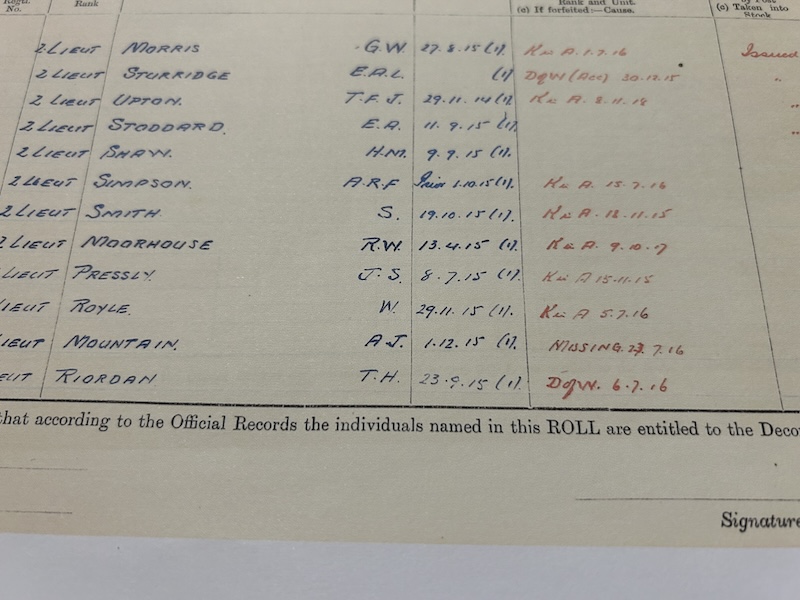 Regtl. No. Rank Rank and Unit. (c) If forfeited:—Cause. by Post (c) Taken into Stock
2 LIEUT MORRIS G.W. 27.8.15 (1). K in A. 1.7.16 Issued
2 LIEUT STURRIDGE E.A.L. (1) DofW (Acc) 30.12.15 "
2 LIEUT UPTON. T.F.J. 29.11.14 (1) K in A. 8.11.18 "
2 LIEUT STODDARD. E.A. 11.9.15 (1). "
2 LIEUT SHAW. H.M. 9.9.15 (1).
2 LIEUT SIMPSON. A.R.F Prior 1.10.15 (1). K in A. 15.7.16
2 LIEUT SMITH. S. 19.10.15 (1). K in A. 18.11.15
2 LIEUT MOORHOUSE R.W. 13.4.15 (1). K in A. 9.10.17
LIEUT PRESSLY. J.S. 8.7.15 (1). K in A 15.11.15
LIEUT ROYLE. W. 29.11.15 (1). K in A 5.7.16
LIEUT MOUNTAIN. A.J. 1.12.15 (1). MISSING. 7.16
EUT RIORDAN T.H. 23.9.15 (1). DofW. 6.7.16
that according to the Official Records the individuals named in this ROLL are entitled to the Deco
Signature